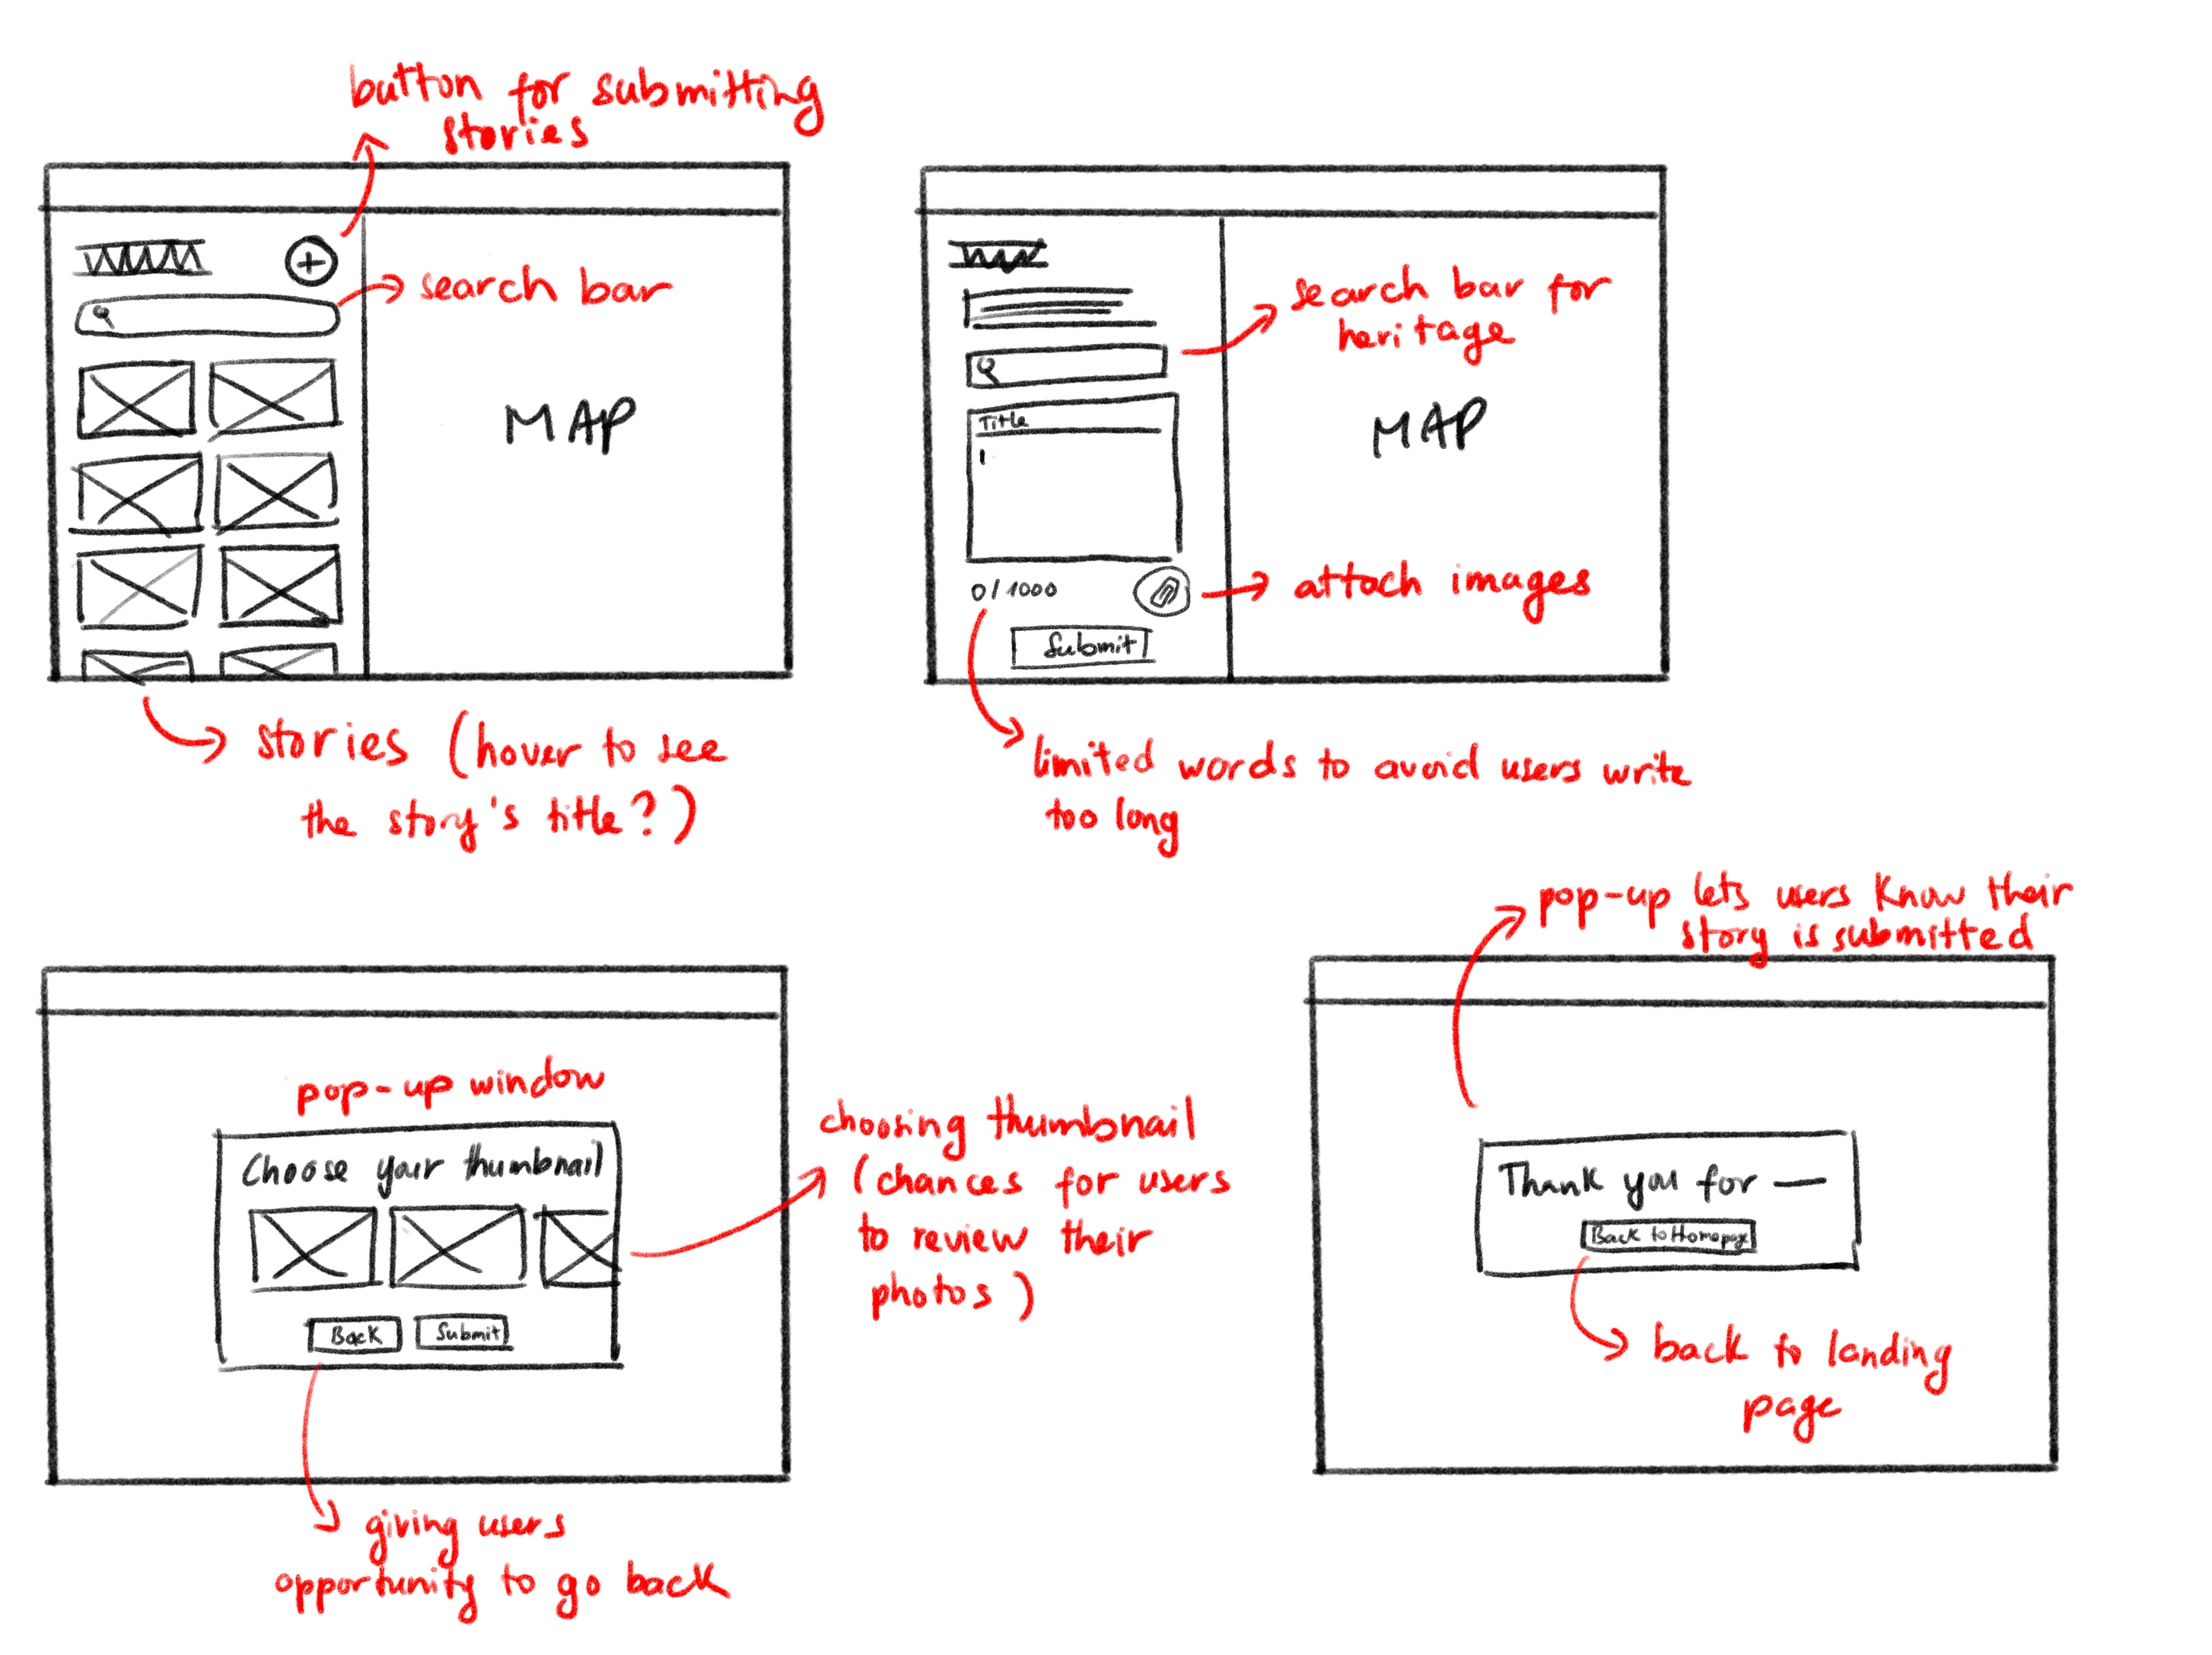 button for submitting
stories
search bar
MAP
stories (hover to see
the story's title?)
search bar for
heritage
Title
MAP
0/1000
attach images
Submit
limited words to avoid users write
too long
pop-up window
Choose your thumbnail
Back
Submit
choosing thumbnail
(chances for users
to review their
photos)
giving users
opportunity to go back
pop-up lets users know their
story is submitted
Thank you for —
Back to Homepage
back to landing
page